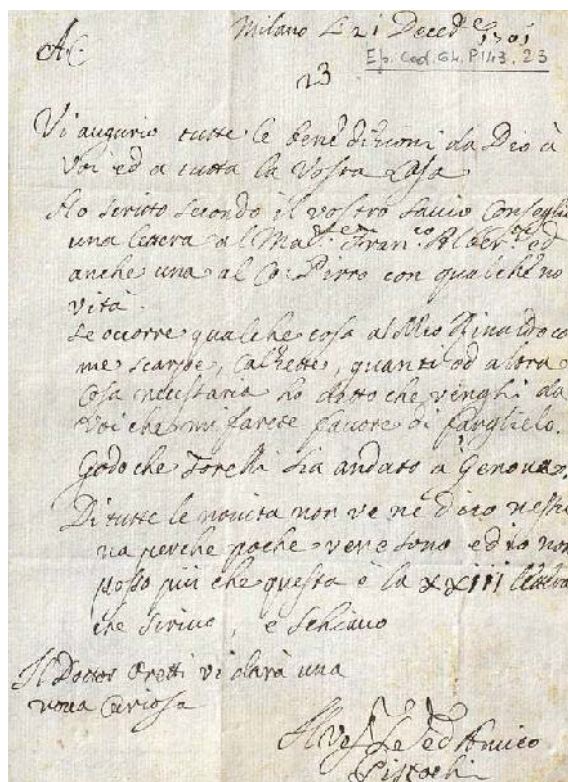 A. C.
Milano Li 21 Decedre 1701
Ep. Cod. 64. P. 143. 23
23
Vi augurio tutte le bened: ditioni da Dio à
Voi ed a tutta la Vostra Casa
Ho scritto secondo il vostro savio Conseglio
una lettera al Mar.se Fran.co Alber.ti ed
anche una al Co: Pirro con qualche no
vità.
se ocorre qualche cosa al Mio Rinaldo co
me scarpe, Calzette, quanti od altora
Cosa necessaria ho detto che venghi da
Voi che mi farete favore di farglielo.
Godo che Torelli sia andato à Genova.
Di tutte le novita non ve ne dico nessu
na perche poche vene sono ed io non
posso più che questa è la XXIII lettera
che scrivo, e schiavo
Il Doctor Oretti vi darà una
nova Curiosa
Il Vos. Se ed Amico
Pistochi